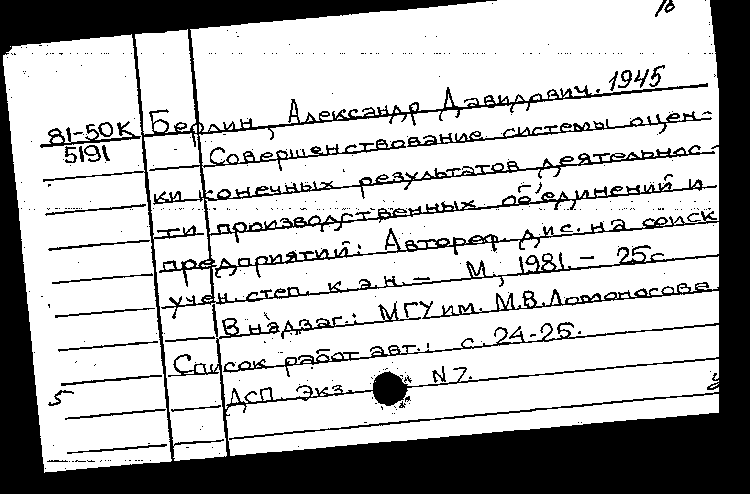 81-50К Берлин, Александр Давидович. 1945
5191
Совершенствование системы оцен-
ки конечных результатов деятельнос-
ти производственных об'единений и
предприятий: Автореф. дис. на соиск
учен. степ. к.э.н. — М., 1981. — 25с
В надзаг.: МГУ им. М.В.Ломоносова.
Список работ авт.: с. 24-25.
5
ДСП. Экз. N 7.